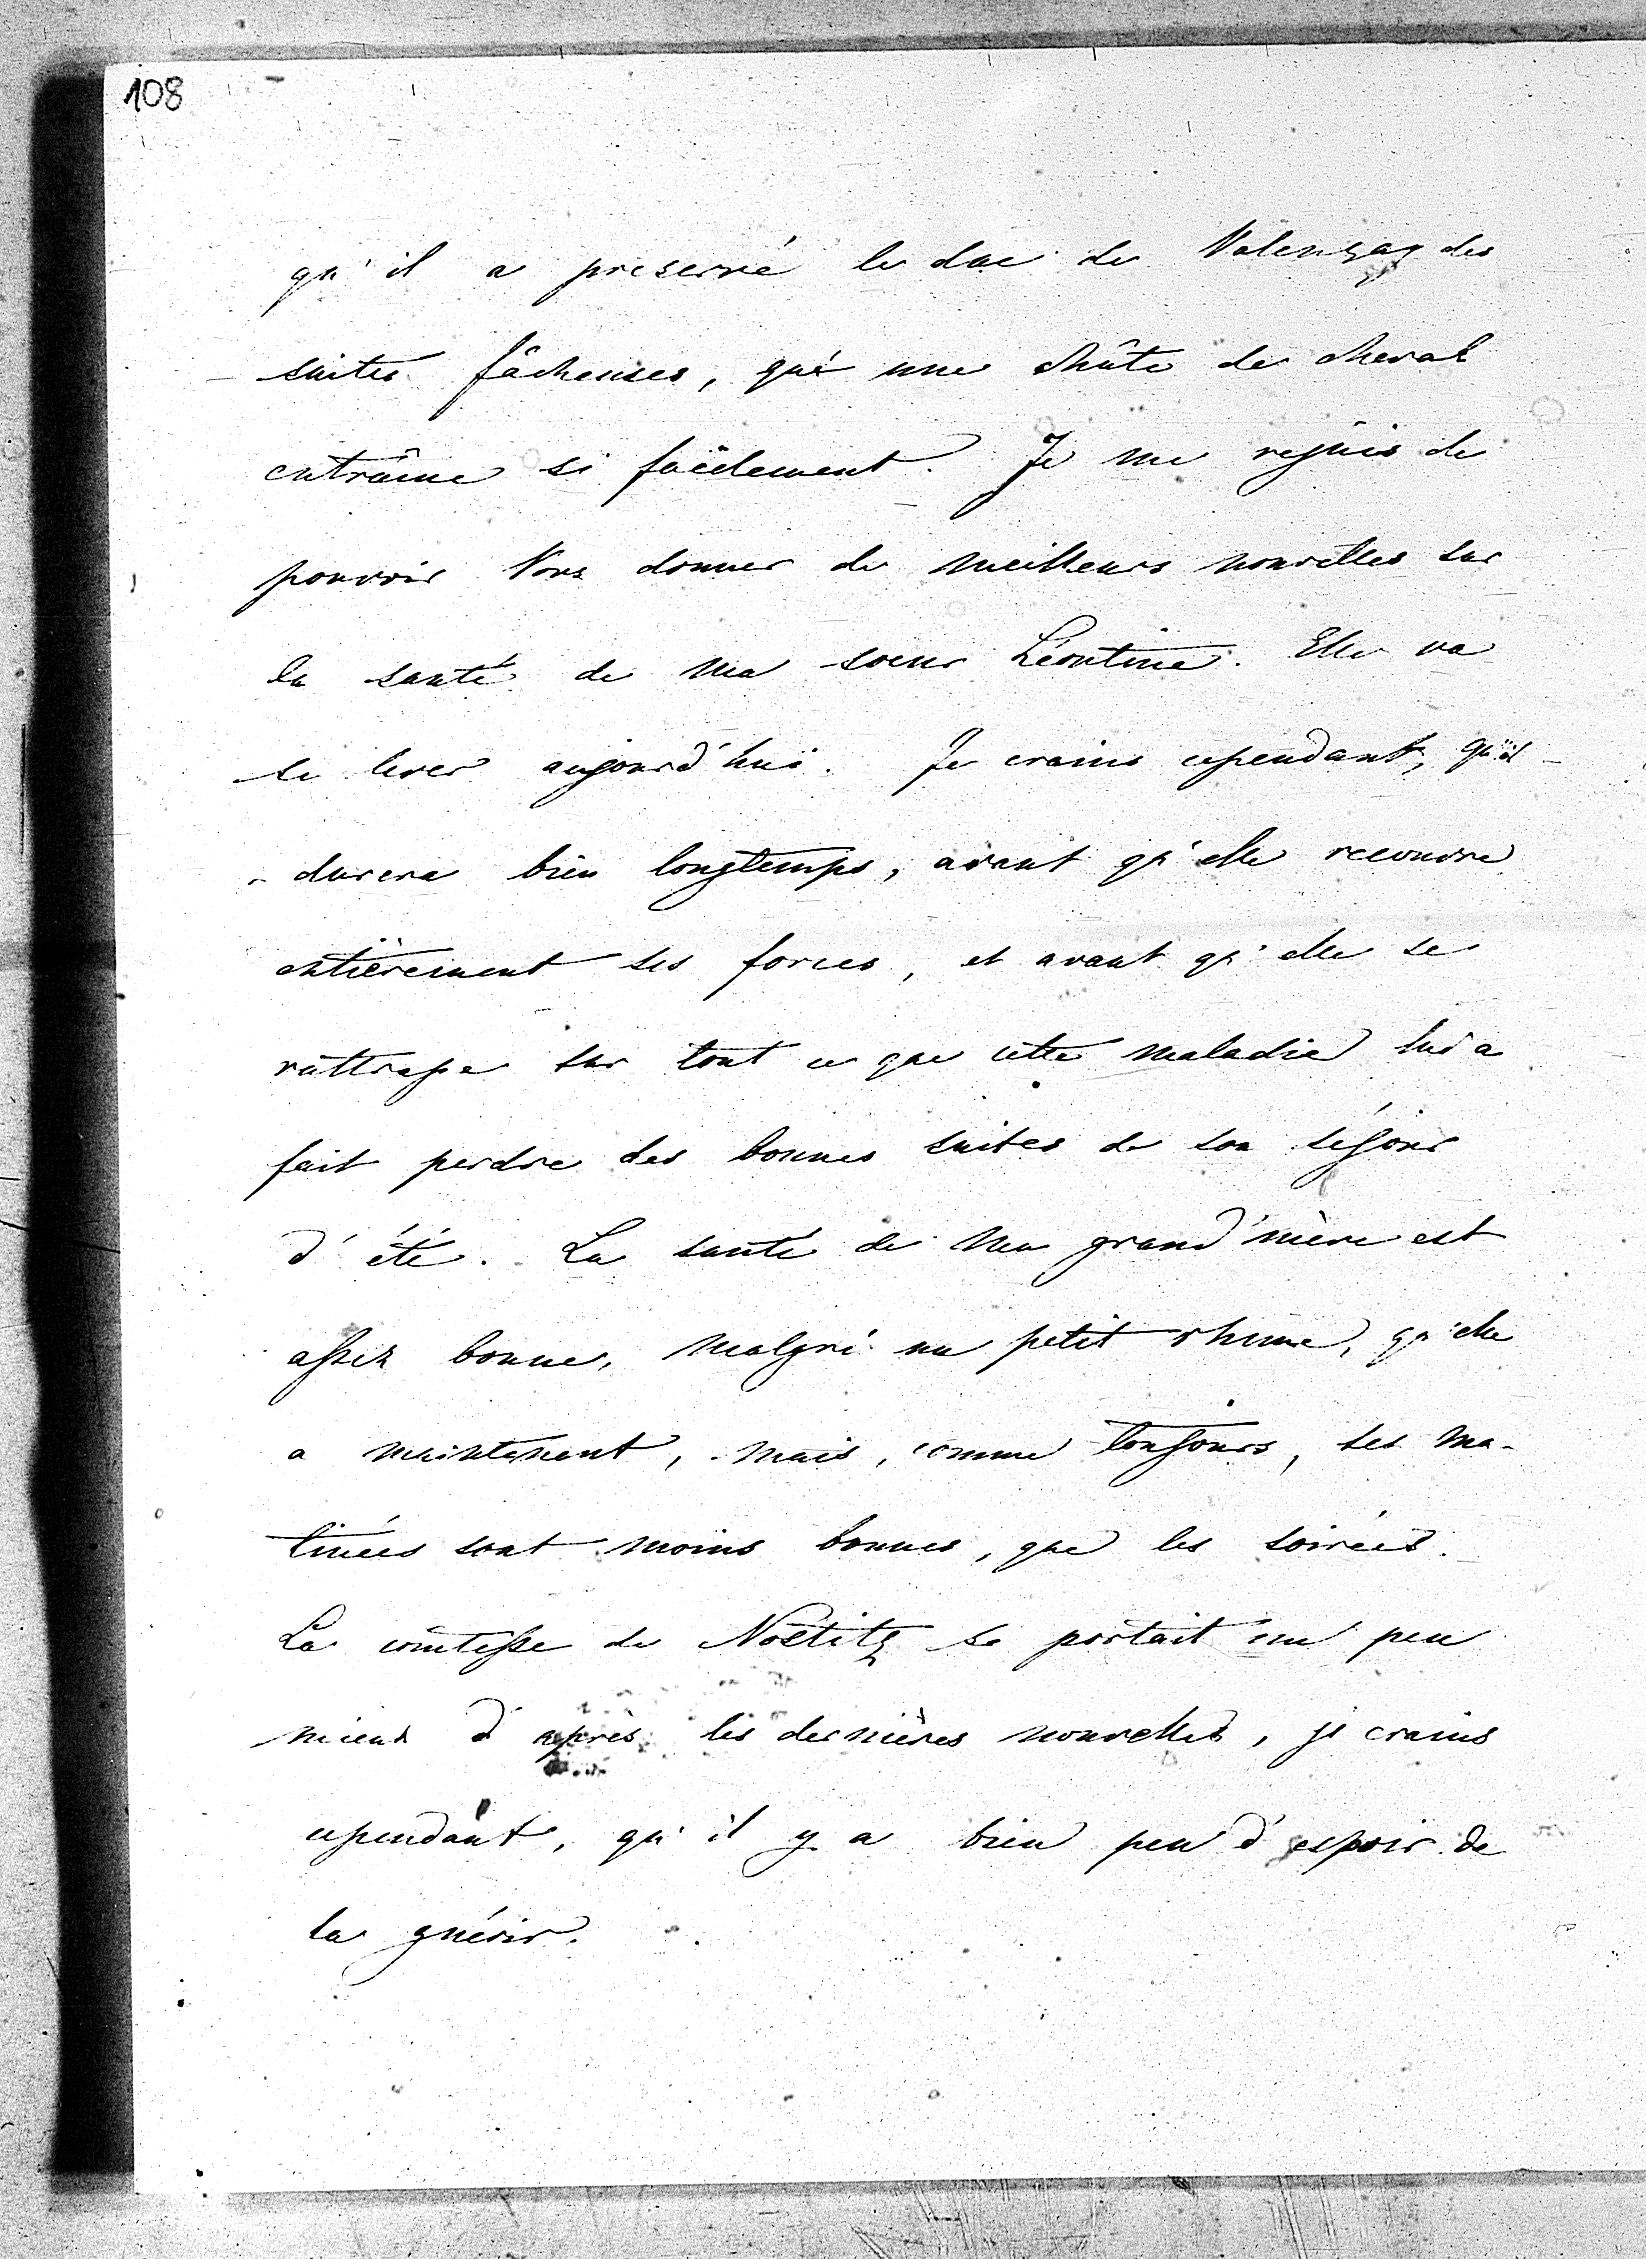 108
qu'il a preservé le duc de Valençay des
suites fâcheuses, qué une chûte de cheval
entraîne si facilement. Je me rejouis de
pouvoir Vous donner de meilleurs nouvelles sur
la santé de ma soeur Léontine. Elle va
se lever aujourd'hui. Je crains cependant, qu'il
durera bien longtemps, avant qu'elle recouvre
entièrement ses forces, et avant qu'elle se
rattrape sur tout ce que cette maladie lui a
fait perdre des bonnes suites de son séjour
d'été. La santé de ma grand'mère est
assez bonne, malgré un petit rhume, qu'elle
a maintenant, mais, comme toujours, ses ma-
tinées sont moins bonnes, que les soirées.
La comtesse de Nostitz se portait un peu
mieux d'après les dernières nouvelles, je crains
cependant, qu'il y a bien peu d'espoir de
la guérir.